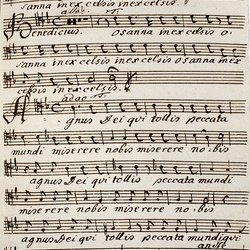 sanna in excelsis in excelsis.
Benedictus. osanna in excelsis o.
sanna in excelsis in excelsis osanna in ex
celsis in excelsis.
adag
Agnus Dei qui tollis peccata
mundi miserere nobis miserere no bis
agnus Dei qui tollis peccata mundi
miserere nobis miserere no bis
agnus Dei qui tollis peccata